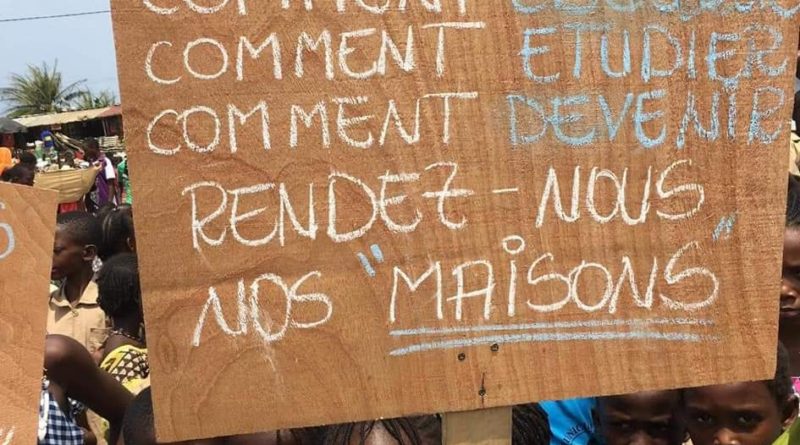 COMMENT
COMMENT ETUDIER
COMMENT DEVENIR
RENDEZ-NOUS
NOS "MAISONS"